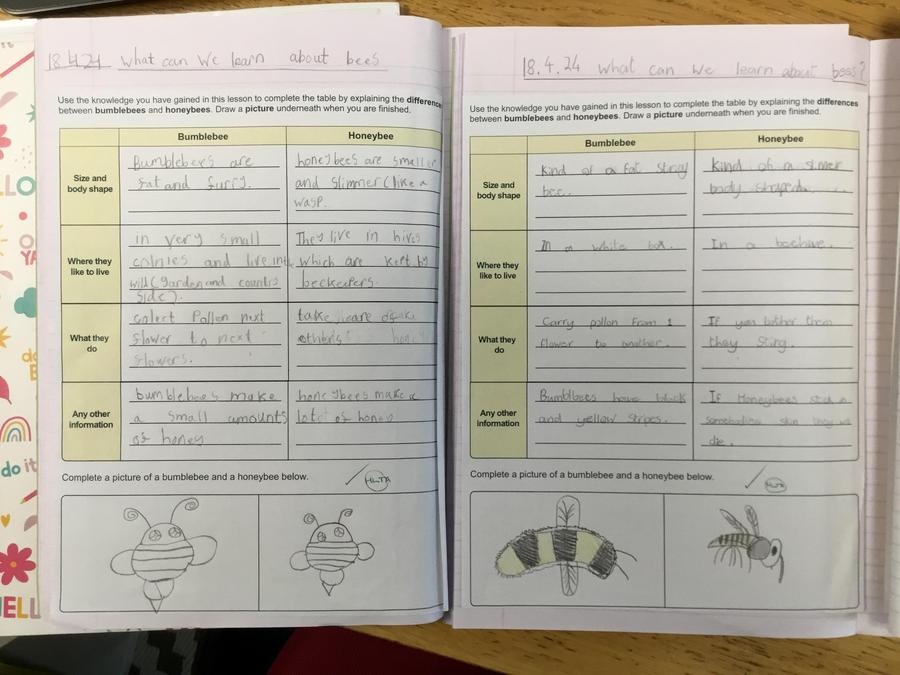 18.4.24 What can we learn about bees
Use the knowledge you have gained in this lesson to complete the table by explaining the differenc
between bumblebees and honeybees. Draw a picture underneath when you are finished.
Bumblebee
Honeybee
Size and
body shape
Bumblebees are
fat and furry.
honeybees are smaller
and slimmer (like a
wasp.
Where they
like to live
in very small
colnies and live in
will (garden and countrs
side).
They live in hives
which are kept by
beekeepers.
What they
do
colect Pollen next
flower to next
flowers.
take
others
hone
Any other
information
bumblebees make
a small amounts
of honey
honeybees make a
lot of honey
Complete a picture of a bumblebee and a honeybee below.
HLTA
18.4.24 What can we learn about bees?
Use the knowledge you have gained in this lesson to complete the table by explaining the differences
between bumblebees and honeybees. Draw a picture underneath when you are finished.
Bumblebee
Honeybee
Size and
body shape
Kind of a fat stingy
bee.
Kind of a
body shaped
Where they
like to live
In a white box.
In a beehive.
What they
do
Carry pollon from 1
flower to another.
If you bother them
they sting.
Any other
information
Bumblbees have black
and yellow stripes.
If Honeybees
skin they
die.
Complete a picture of a bumblebee and a honeybee below.
HLTA
LLO
do it
ELL